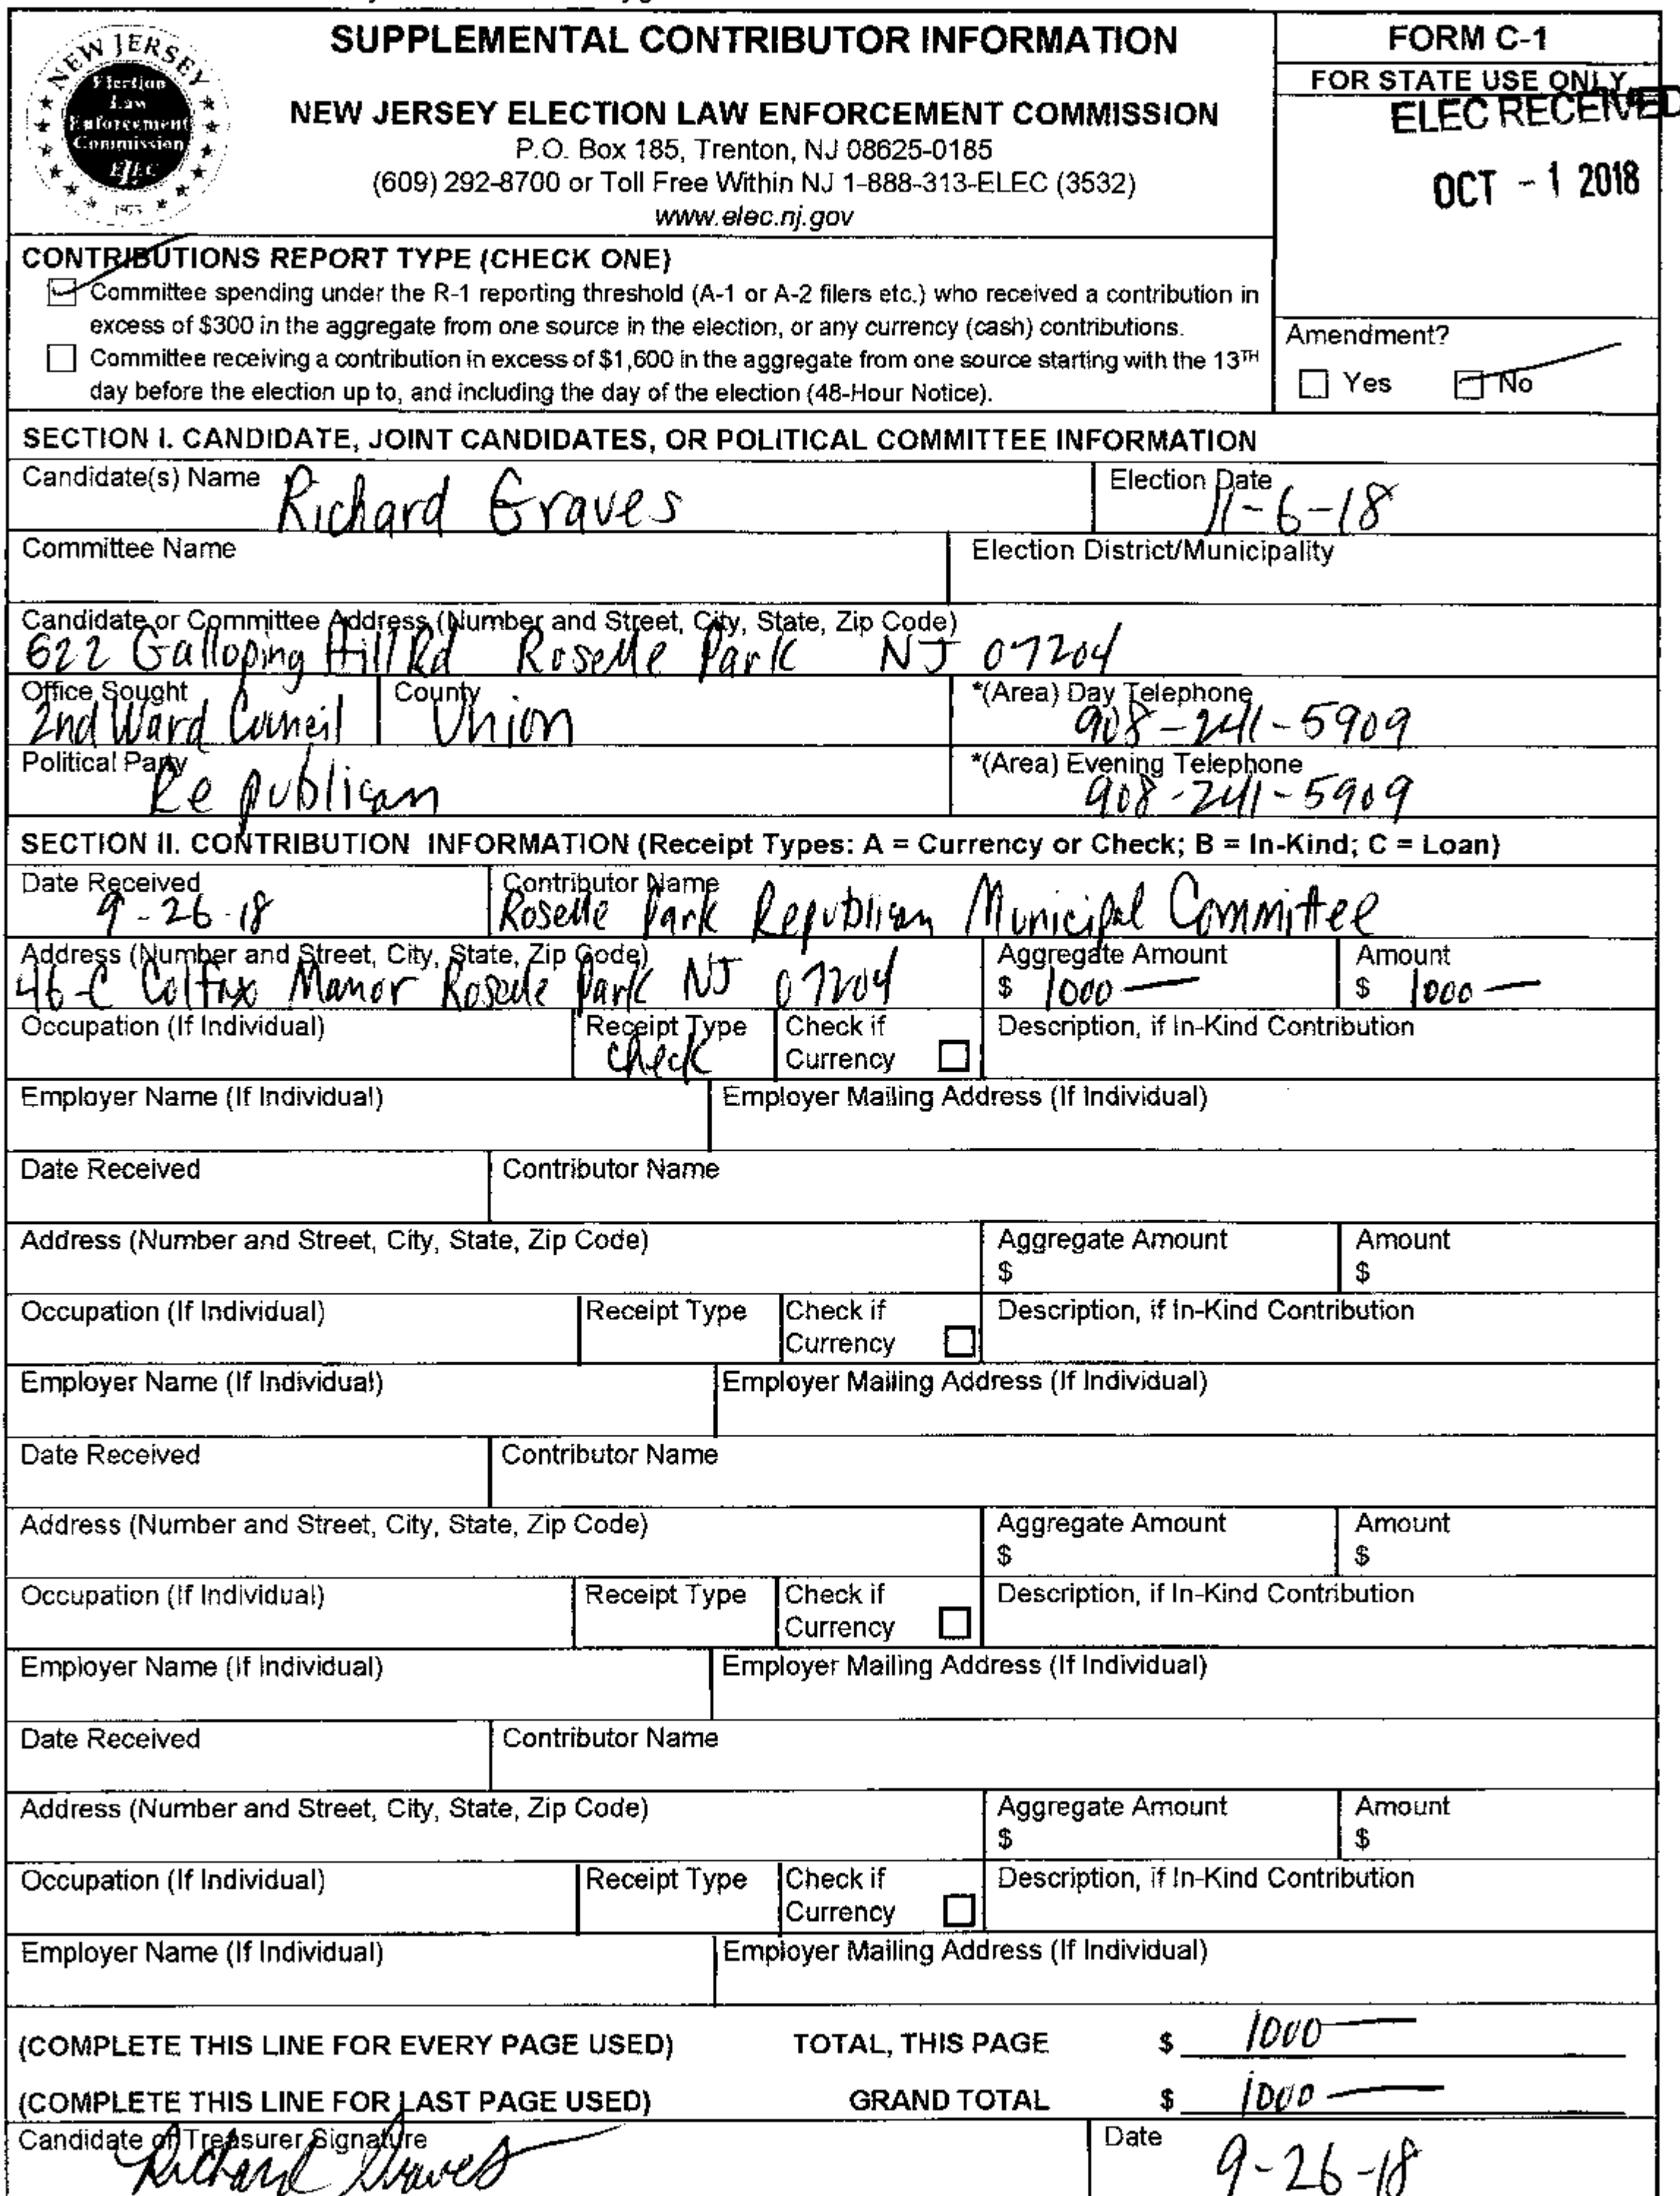 NEW JERSEY
Election
Law
Enforcement
Commission
ELEC
1973
SUPPLEMENTAL CONTRIBUTOR INFORMATION
NEW JERSEY ELECTION LAW ENFORCEMENT COMMISSION
P.O. Box 185, Trenton, NJ 08625-0185
(609) 292-8700 or Toll Free Within NJ 1-888-313-ELEC (3532)
www.elec.nj.gov
FORM C-1
FOR STATE USE ONLY
ELEC RECEIVED
OCT - 1 2018
CONTRIBUTIONS REPORT TYPE (CHECK ONE)
Committee spending under the R-1 reporting threshold (A-1 or A-2 filers etc.) who received a contribution in
excess of $300 in the aggregate from one source in the election, or any currency (cash) contributions.
Committee receiving a contribution in excess of $1,600 in the aggregate from one source starting with the 13TH
day before the election up to, and including the day of the election (48-Hour Notice).
Amendment?
Yes No
SECTION I. CANDIDATE, JOINT CANDIDATES, OR POLITICAL COMMITTEE INFORMATION
Candidate(s) Name Richard Graves
Election Date 11-6-18
Committee Name
Election District/Municipality
Candidate or Committee Address (Number and Street, City, State, Zip Code)
622 Galloping Hill Rd Roselle Park NJ 07204
Office Sought
2nd Ward Council
County
Union
*(Area) Day Telephone
908-241-5909
Political Party
Republican
*(Area) Evening Telephone
908-241-5909
SECTION II. CONTRIBUTION INFORMATION (Receipt Types: A = Currency or Check; B = In-Kind; C = Loan)
Date Received
9-26-18
Contributor Name
Roselle Park Republican Municipal Committee
Address (Number and Street, City, State, Zip Code)
46-C Colfax Manor Roselle Park NJ 07204
Aggregate Amount
$ 1000 —
Amount
$ 1000 —
Occupation (If Individual)
Receipt Type
check
Check if
Currency
Description, if In-Kind Contribution
Employer Name (If Individual)
Employer Mailing Address (If Individual)
Date Received
Contributor Name
Address (Number and Street, City, State, Zip Code)
Aggregate Amount
$
Amount
$
Occupation (If Individual)
Receipt Type
Check if
Currency
Description, if In-Kind Contribution
Employer Name (If Individual)
Employer Mailing Address (If Individual)
Date Received
Contributor Name
Address (Number and Street, City, State, Zip Code)
Aggregate Amount
$
Amount
$
Occupation (If Individual)
Receipt Type
Check if
Currency
Description, if In-Kind Contribution
Employer Name (If Individual)
Employer Mailing Address (If Individual)
Date Received
Contributor Name
Address (Number and Street, City, State, Zip Code)
Aggregate Amount
$
Amount
$
Occupation (If Individual)
Receipt Type
Check if
Currency
Description, if In-Kind Contribution
Employer Name (If Individual)
Employer Mailing Address (If Individual)
(COMPLETE THIS LINE FOR EVERY PAGE USED) TOTAL, THIS PAGE $ 1000 —
(COMPLETE THIS LINE FOR LAST PAGE USED) GRAND TOTAL $ 1000 —
Candidate or Treasurer Signature
Richard Graves
Date
9-26-18